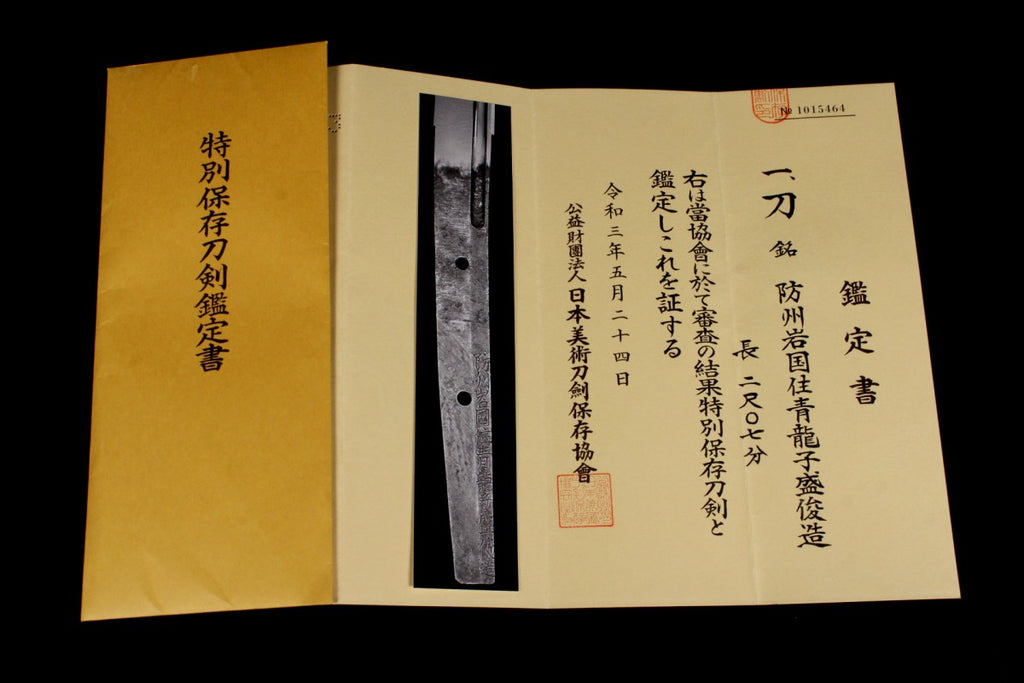 特別保存刀剣鑑定書
№ 1015464
鑑定書
一、刀 銘 防州岩国住青龍子盛俊造
長 二尺〇七分
右は當協會に於て審査の結果特別保存刀剣と
鑑定しこれを証する
令和三年五月二十四日
公益財團法人 日本美術刀劍保存協會